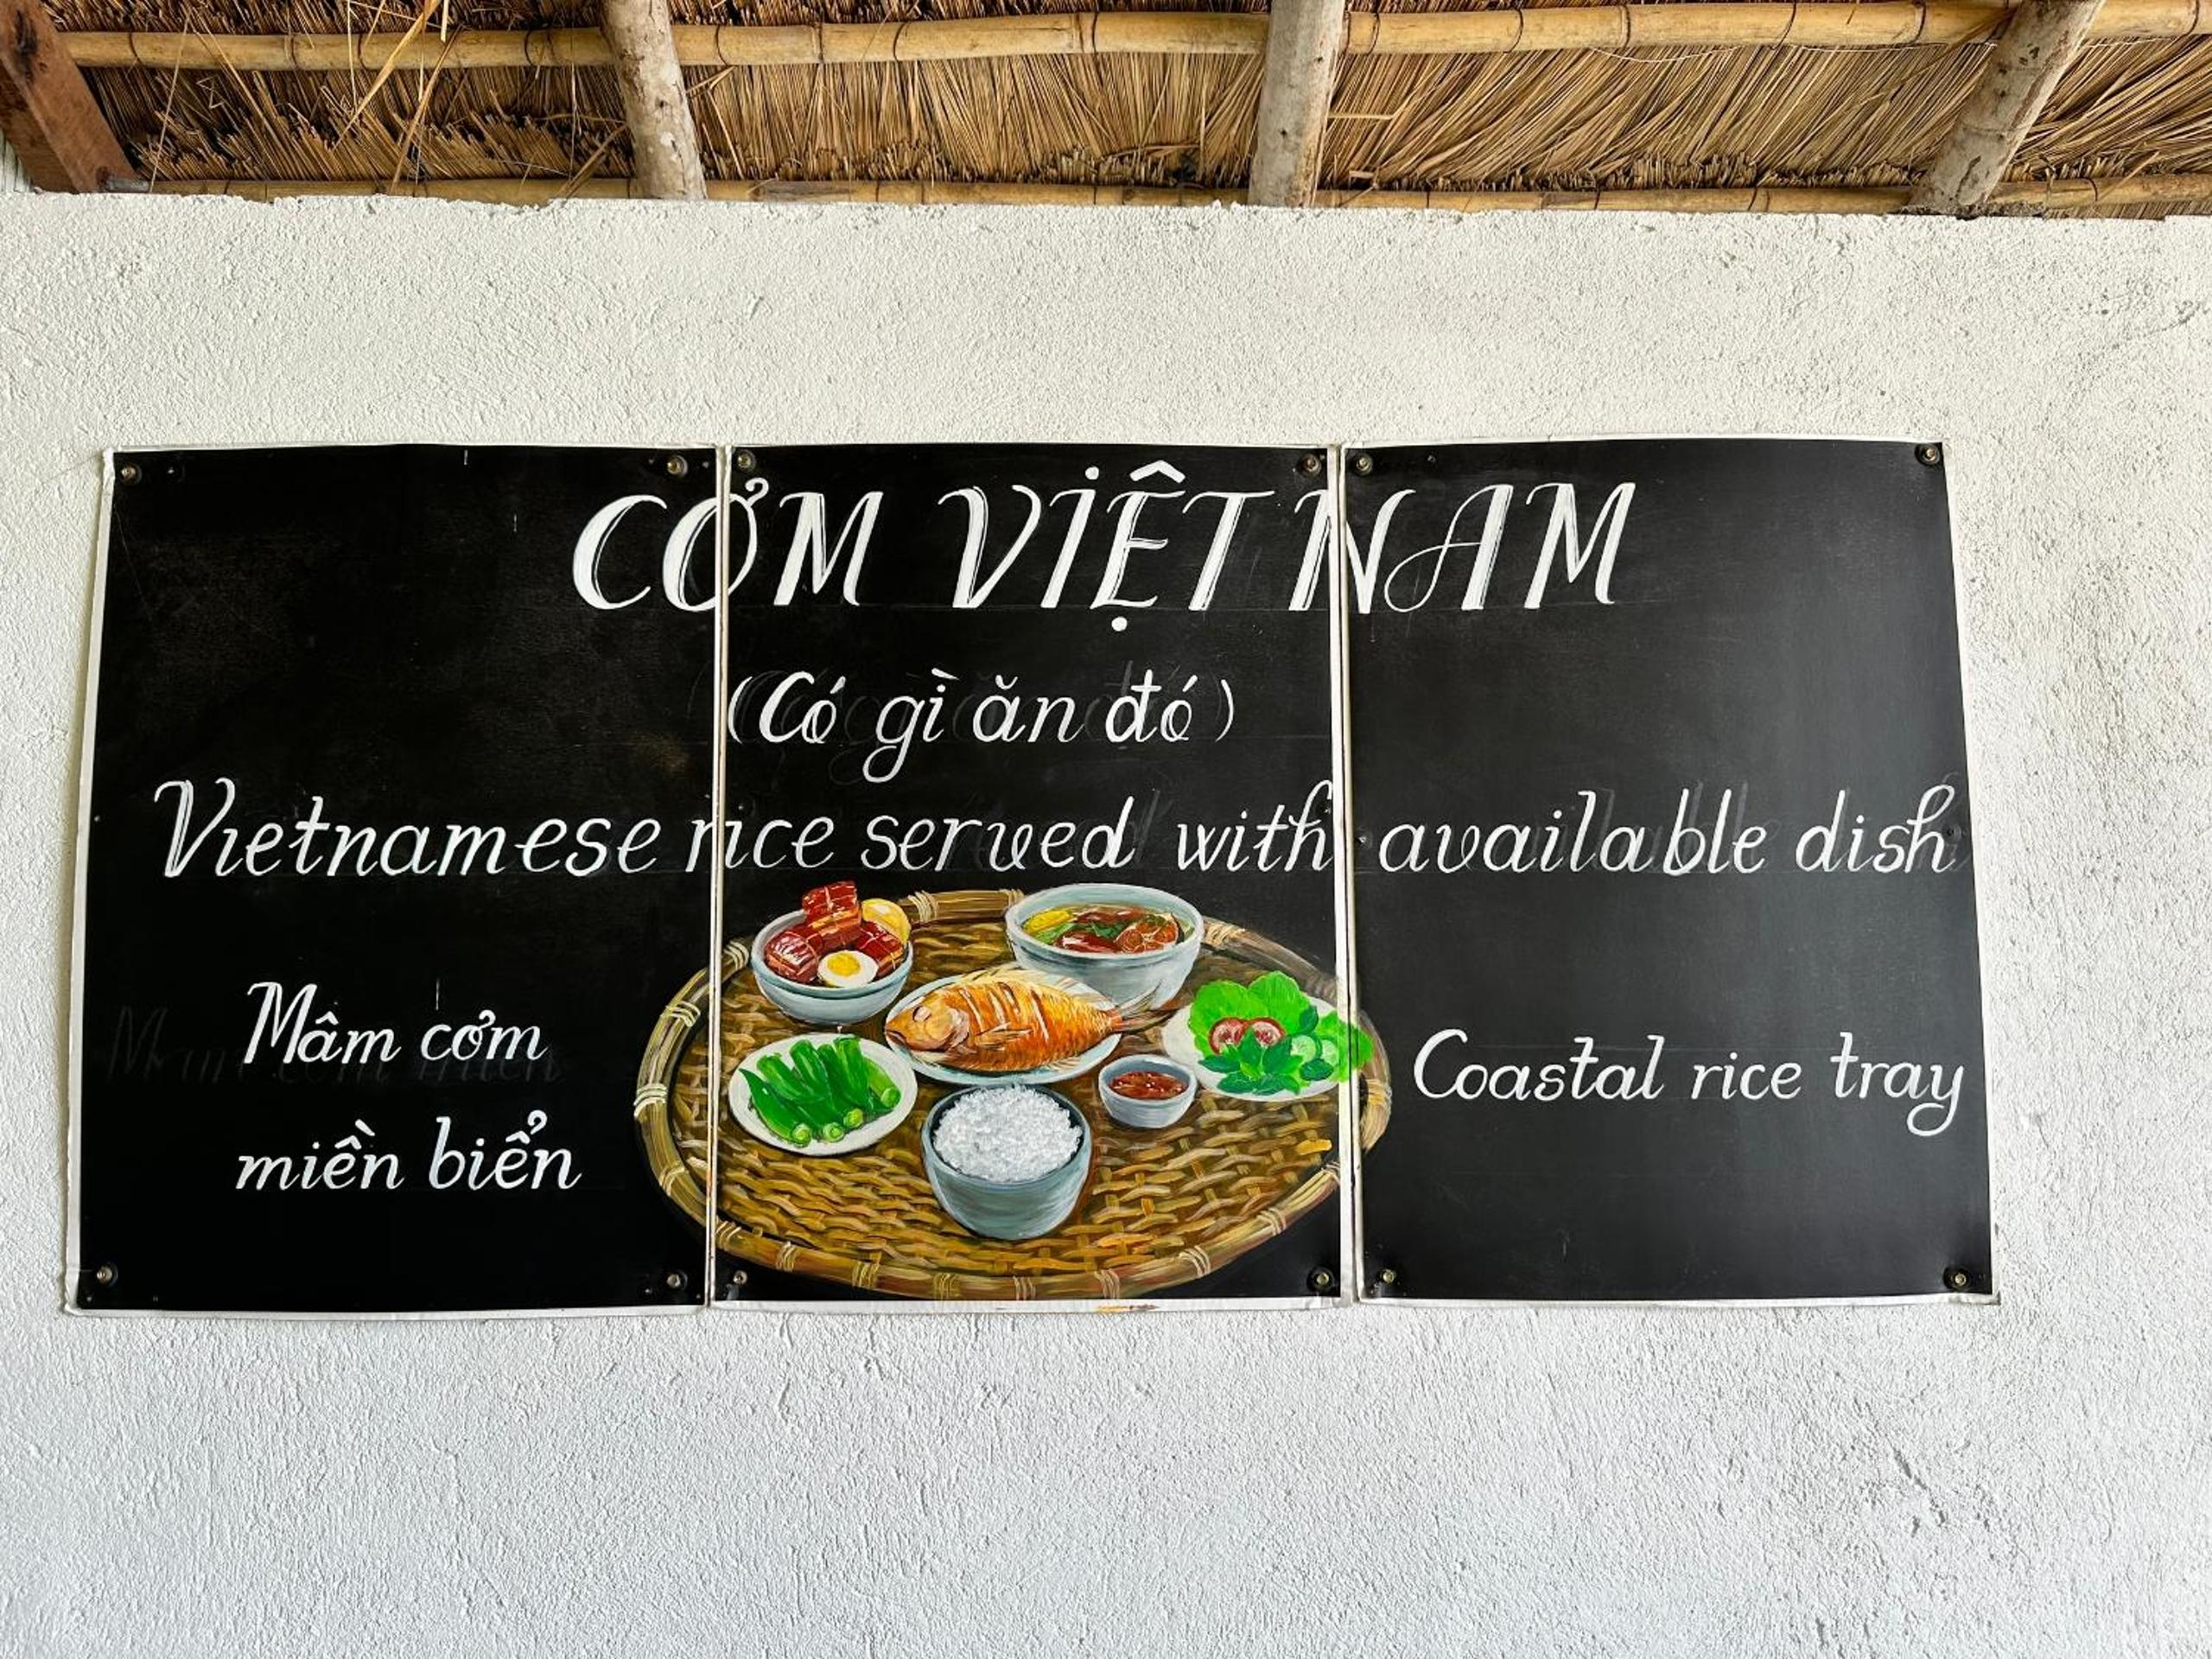 CƠM VIỆT NAM
(Có gì ăn đó)
Vietnamese rice served with available dish
Mâm cơm
miền biển
Coastal rice tray